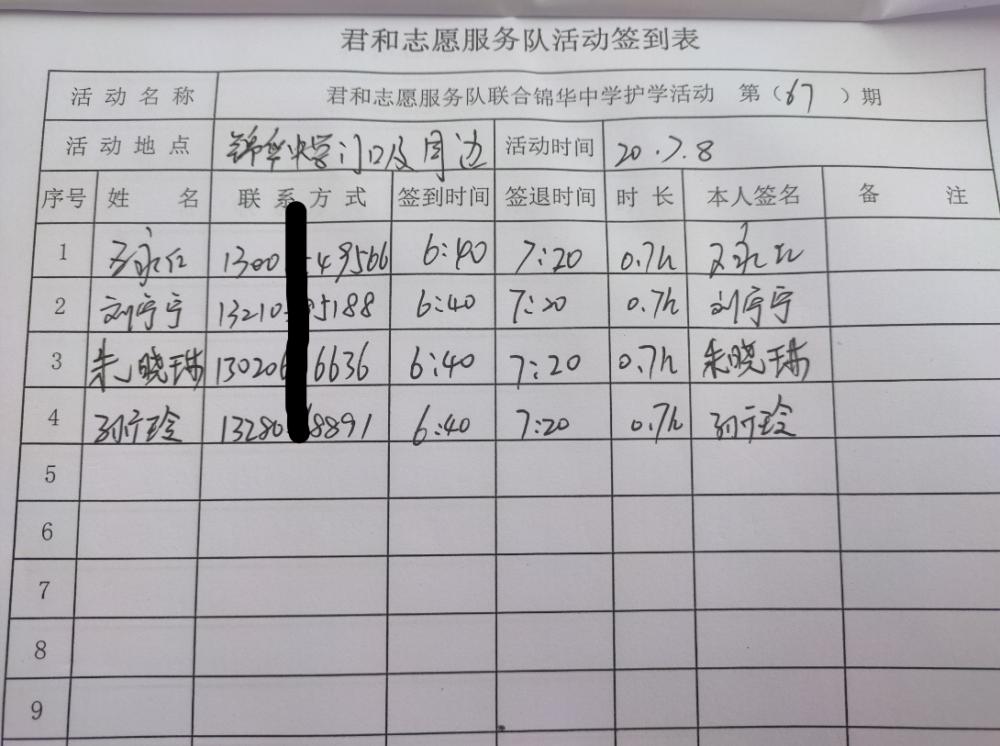 君和志愿服务队活动签到表
活动名称 君和志愿服务队联合锦华中学护学活动 第（67）期
活动地点 锦华中学门口及周边 活动时间 20.7.8
序号 姓名 联系方式 签到时间 签退时间 时长 本人签名 备注
1 1300 49566 6:40 7:20 0.7h
2 刘宁宁 13210 5188 6:40 7:20 0.7h 刘宁宁
3 朱晓琳 13020 6636 6:40 7:20 0.7h 朱晓琳
4 13280 8891 6:40 7:20 0.7h
5
6
7
8
9